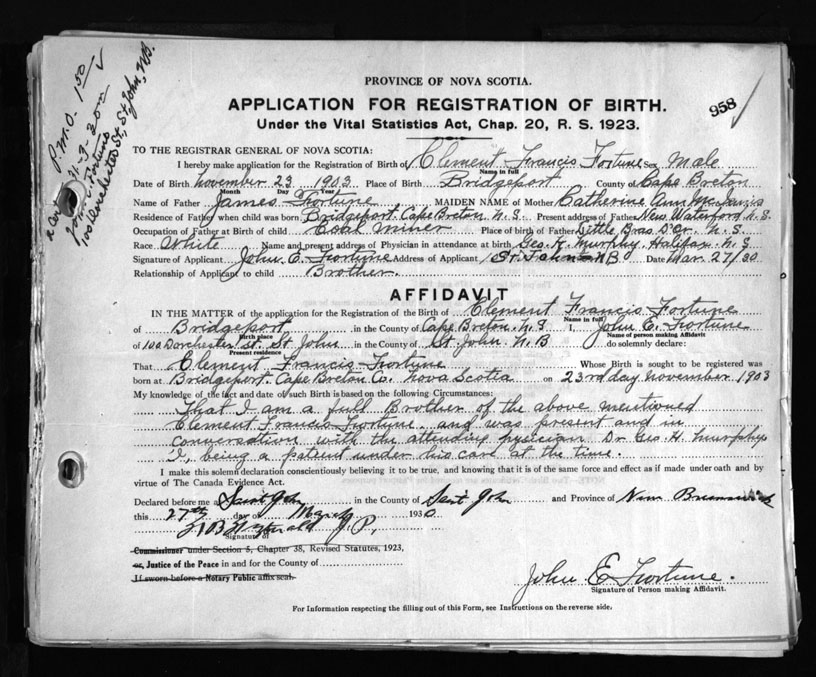 P.M.O. 1.50
31-3-30
John E. Fortune
100 Dorchester St, St. John, N.B.
958
PROVINCE OF NOVA SCOTIA.
APPLICATION FOR REGISTRATION OF BIRTH.
Under the Vital Statistics Act, Chap. 20, R. S. 1923.
TO THE REGISTRAR GENERAL OF NOVA SCOTIA:
I hereby make application for the Registration of Birth of Clement Francis Fortune Sex Male
Name in full
Date of Birth November 23 1903 Place of Birth Bridgeport County of Cape Breton
Month Day Year
Name of Father James Fortune MAIDEN NAME of Mother Catherine Ann
Residence of Father when child was born Bridgeport, Cape Breton N.S. Present address of Father New Waterford N.S
Occupation of Father at Birth of child Coal miner Place of birth of Father Little Bras D'Or N.S.
Race White Name and present address of Physician in attendance at birth Geo. H. Murphy, Halifax N.S
Signature of Applicant John E. Fortune Address of Applicant St John NB Date Mar. 27/30
Relationship of Applicant to child Brother.
AFFIDAVIT
IN THE MATTER of the application for the Registration of the Birth of Clement Francis Fortune
Name in full
of Bridgeport in the County of Cape Breton. N.S I, John E. Fortune
Birth place Name of person making Affidavit
of 100 Dorchester St. St John in the County of St. John N.B do solemnly declare:
Present residence
That Clement Francis Fortune Whose Birth is sought to be registered was
born at Bridgeport, Cape Breton Co. Nova Scotia on 23rd day November 1903
My knowledge of the fact and date of such Birth is based on the following Circumstances:
That I am a full Brother of the above mentioned
Clement Francis Fortune. and was present and in
conversation with the attending pysician Dr Geo. H. Murphy
I, being a patient under his care at the time.
I make this solemn declaration conscientiously believing it to be true, and knowing that it is of the same force and effect as if made under oath and by
virtue of The Canada Evidence Act.
Declared before me at Saint John in the County of Saint John and Province of New Brunswick
this 27th day of March 1930
J P,
Signature of
Commissioner under Section 5, Chapter 38, Revised Statutes, 1923,
or, Justice of the Peace in and for the County of
If sworn before a Notary Public affix seal.
John E Fortune.
Signature of Person making Affidavit.
For Information respecting the filling out of this Form, see Instructions on the reverse side.